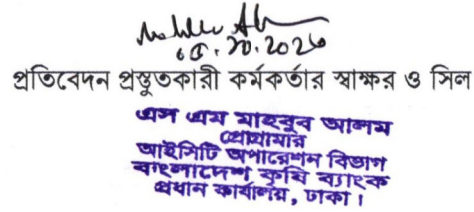 ০৫.১০.২০২৩
প্রতিবেদন প্রস্তুতকারী কর্মকর্তার স্বাক্ষর ও সিল
এস এম মাহবুব আলম
প্রোগ্রামার
আইসিটি অপারেশন বিভাগ
বাংলাদেশ কৃষি ব্যাংক
প্রধান কার্যালয়, ঢাকা।